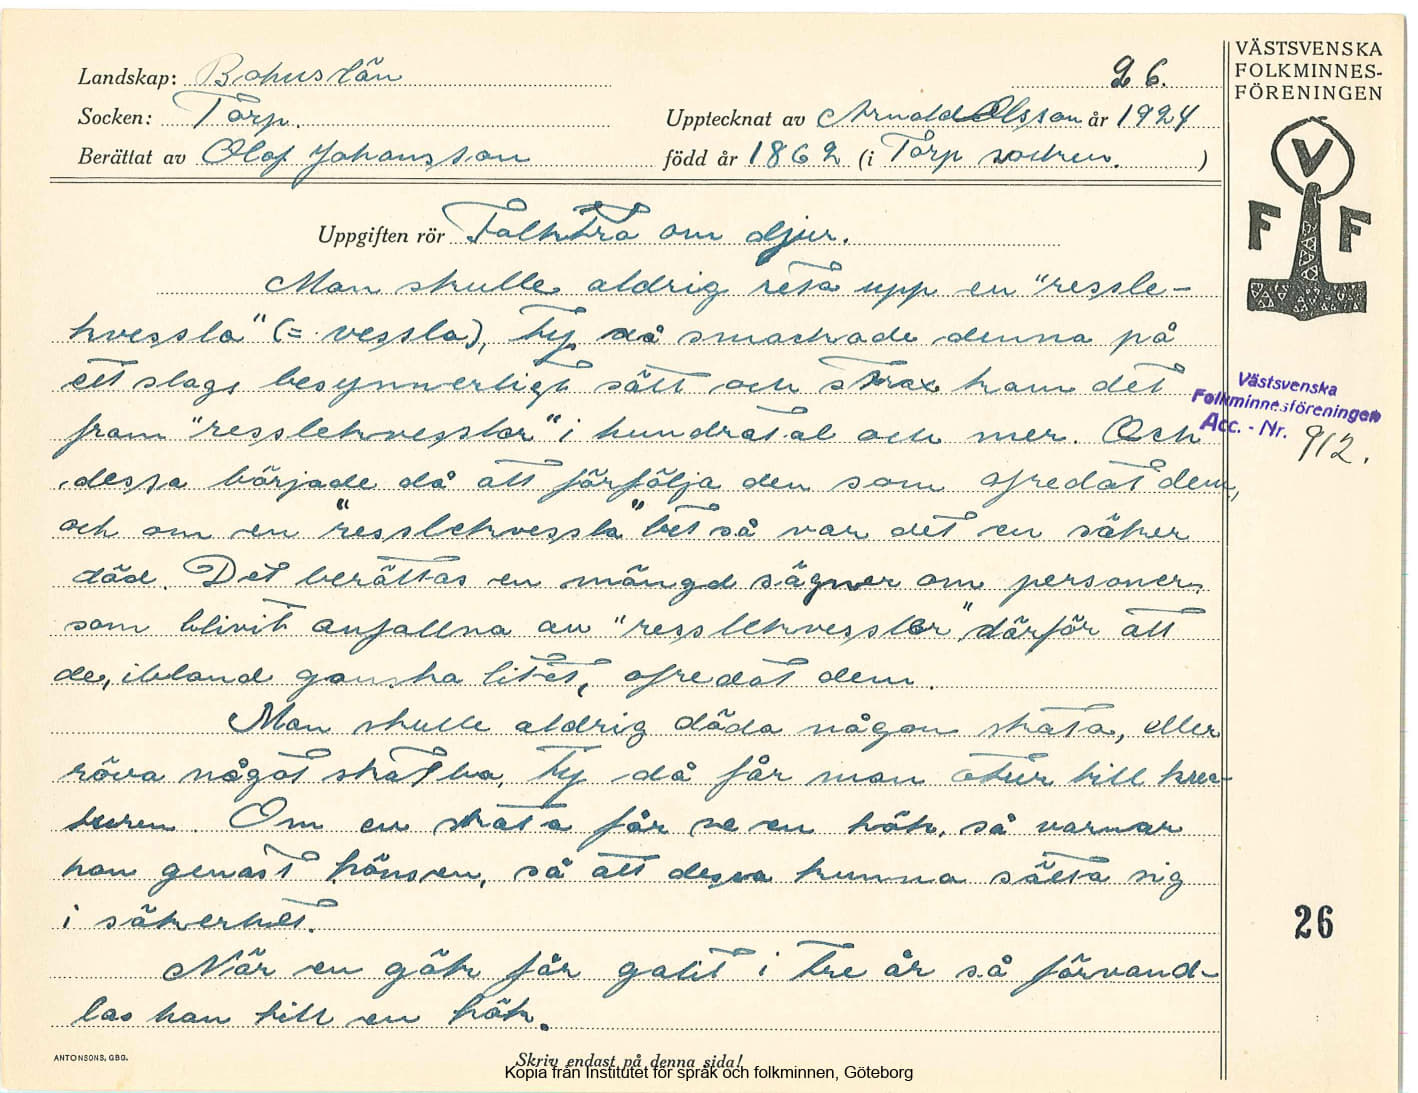 Landskap: Bohuslän
26.
Socken: Torp.
Upptecknat av Arnold Olsson år 1924
Berättat av Olof Johansson
född år 1862 (i Torp socken.)
VÄSTSVENSKA
FOLKMINNES-
FÖRENINGEN
V
F F
Uppgiften rör Folktro om djur.
Man skulle aldrig reta upp en "ressle-
kvessla" (= vessla), ty då smackade denna på
ett slags besynnerligt sätt och strax kom det
fram "resslekvesslor" i hundratal och mer. Och
dessa började då att förfölja den som ofredat dem,
och om en "resslekvessla" bet så var det en säker
död. Det berättas en mängd sägner om personer,
som blivit anfallna av "resslekvesslor", därför att
de, ibland ganska litet, ofredat dem.
Man skulle aldrig döda någon skata, eller
röva något skatbo, ty då får man otur till krea-
turen. Om en skata får se en hök, så varnar
hon genast hönsen, så att dessa kunna sätta sig
i säkerhet.
När en gök får galit i tre år så förvand-
las han till en hök.
Västsvenska
Folkminnesföreningen
Acc. - Nr. 912.
26
ANTONSONS, GBG.
Skriv endast på denna sida!
Kopia från Institutet för språk och folkminnen, Göteborg